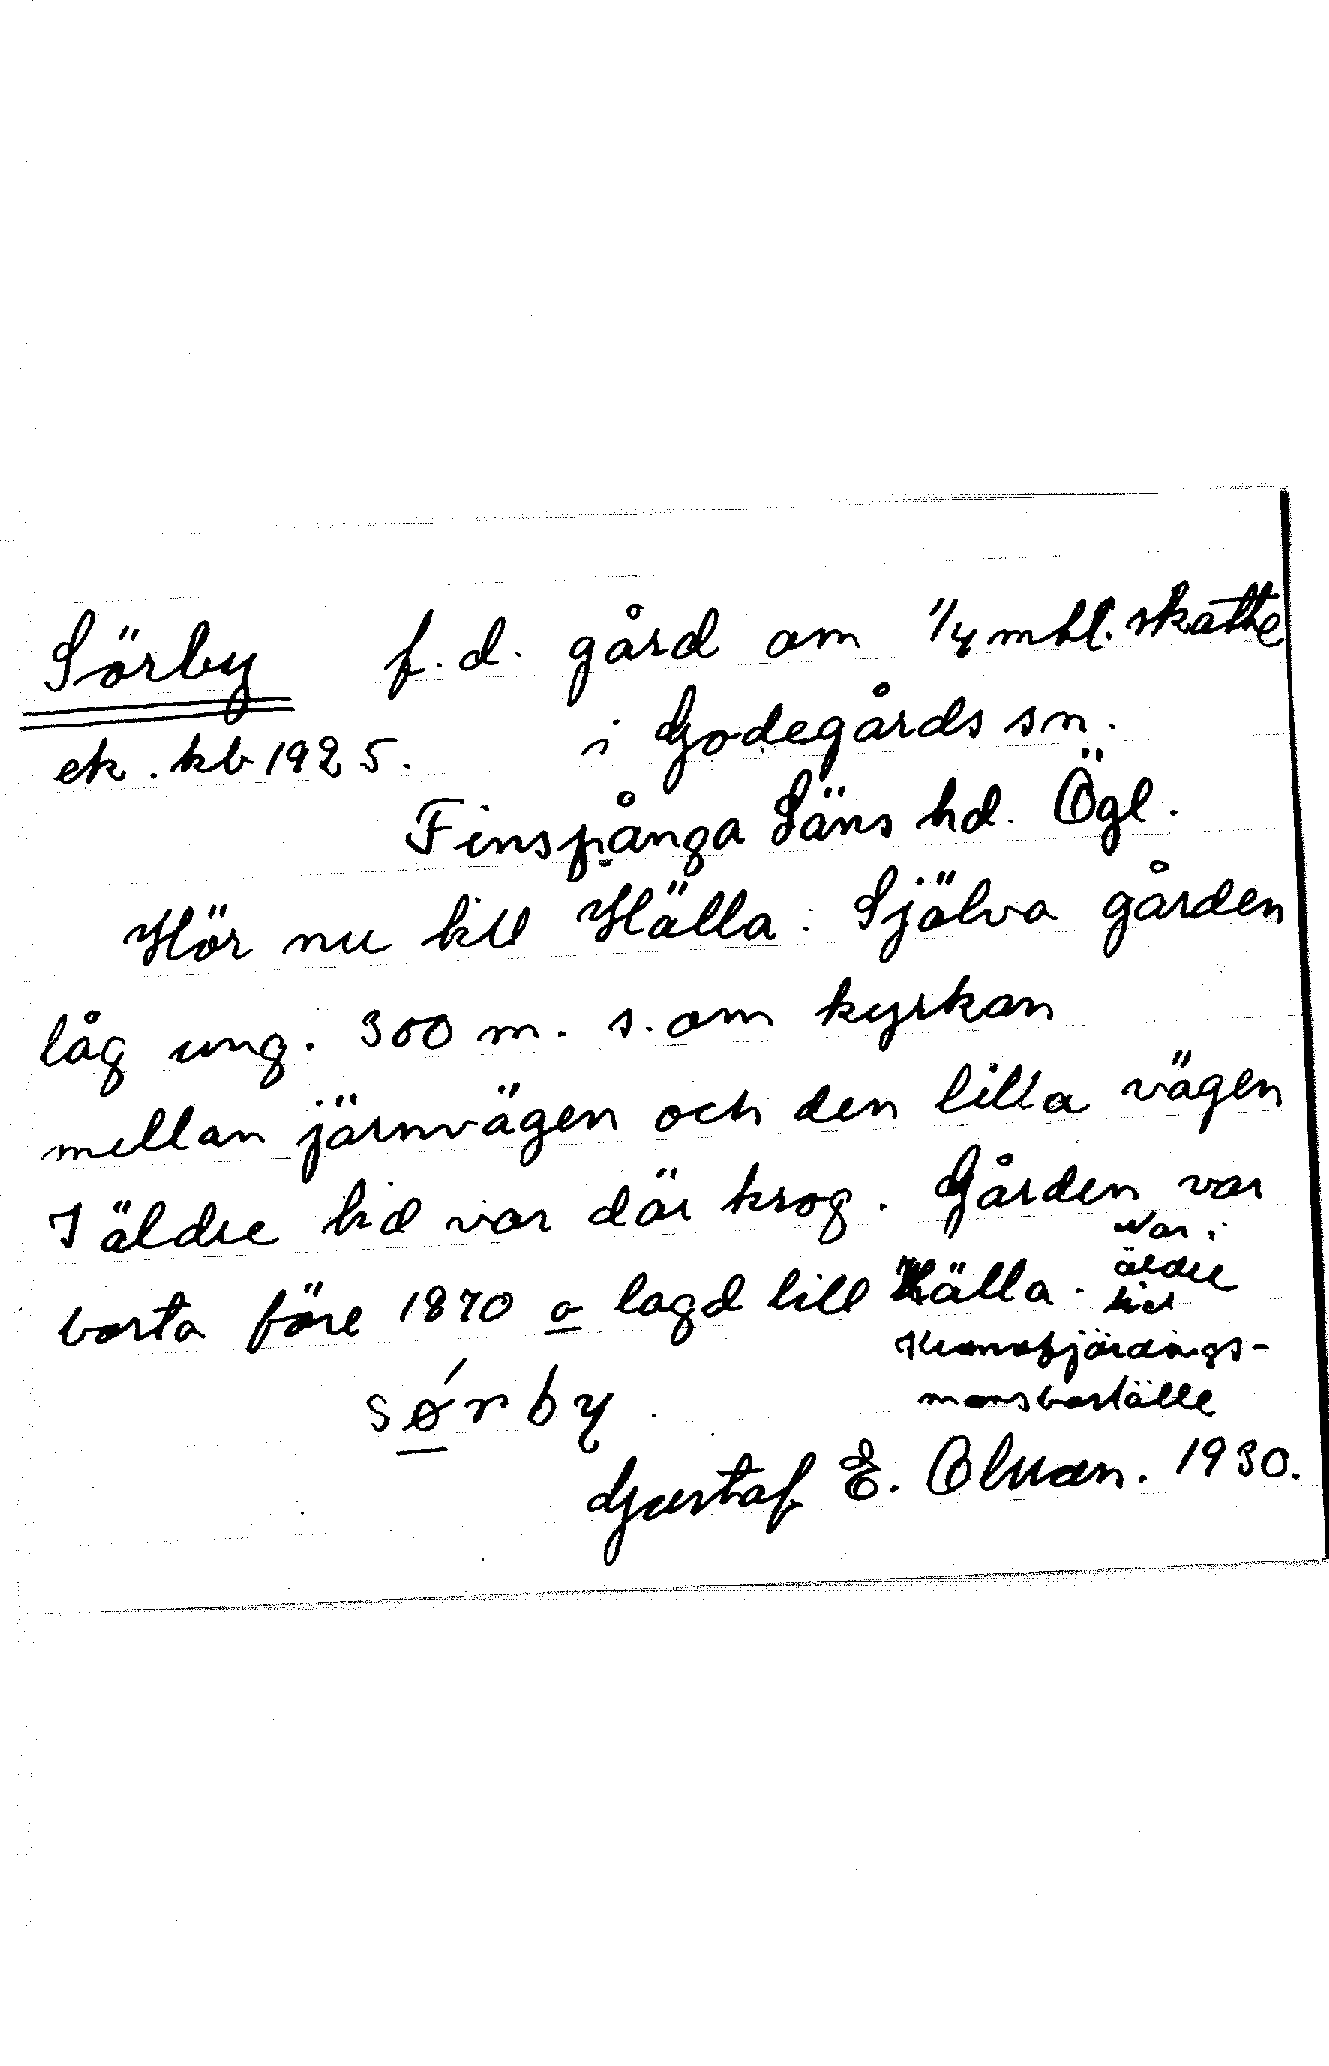 Sörby f.d. gård om 1/4 mtl. skatte
ek. kb 1925. i Godegårds sn.
Finspånga Läns hd. Ögl.
Hör nu till Hälla. Själva gården
låg ung. 300 m. s. om kyrkan
mellan järnvägen och den lilla vägen
I äldre tid var där krog. Gården var
borta före 1870 o lagd till Hälla. Var i
äldre
tid
Kronofjärdings-
mansboställe
sǿrby
Gustaf E. Olsson. 1930.